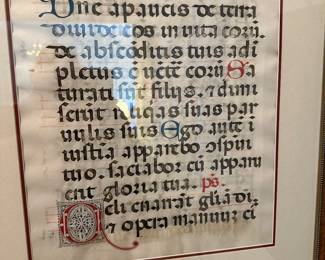 Dñe a paucis de terra
diuide eos in uita eorũ.
de absconditis tuis adi
pletus ẽ uẽtẽ eorũ Sa
turati sũt filijs. ⁊ dimi
serũt reliqas suas par
uulis suis Ego autẽ i
iustitia apparebo ɔspui
tuo. saciabor cũ apparu
erit gloria tua. ps.
Celi enarrãt gliã di
⁊ opera manuũ ei